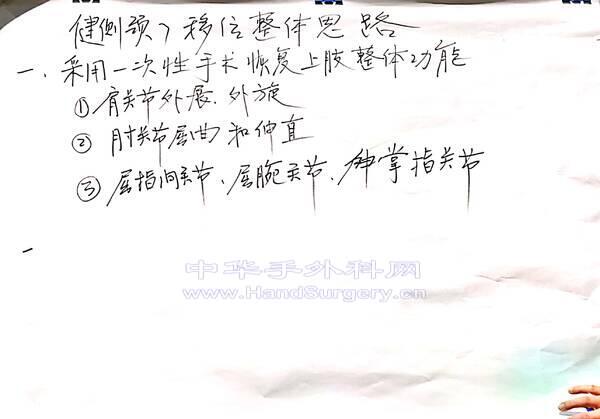 健侧颈7移位整体思路
一、采用一次性手术恢复上肢整体功能
①肩关节外展、外旋
②肘关节屈曲和伸直
③屈指间关节、屈腕关节、伸掌指关节
一
中华手外科网
www.HandSurgery.cn